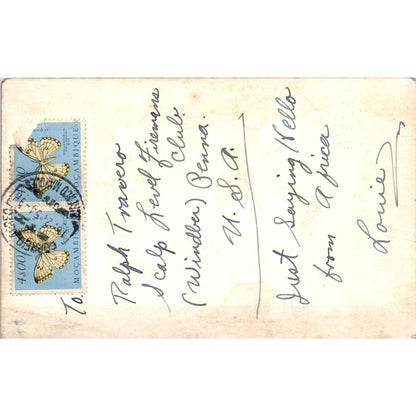 To.
Ralph Travero
Scalp Level Firemans
Club.
(Windber) Penna.
U.S.A.
Just Saying Hello
from Africa
Louie
MOÇAMBIQUE
4$00
MOÇAMBIQUE